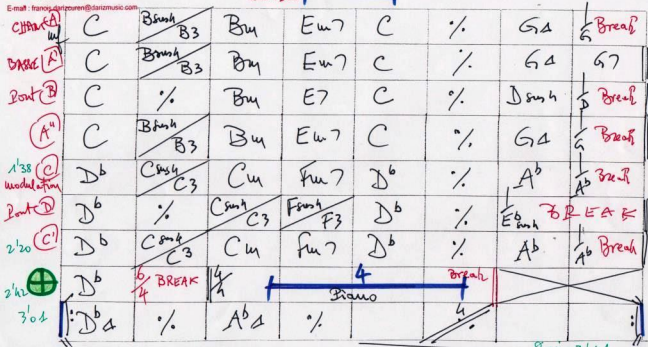 E-mail : francis.darizcuren@darizmusic.com
A C Bsus4 B3 Bm Em7 C % GΔ G Break
A' C Bsus4 B3 Bm Em7 C % GΔ G7
Pont B C % Bm E7 C % Dsus4 D Break
A" C Bsus4 B3 Bm Em7 C % GΔ G Break
1'38 C modulation Db Csus4 C3 Cm Fm7 Db % Ab Ab Break
Pont D Db % Csus4 C3 Fsus4 F3 Db % Eb sus4 BREAK
2'20 C' Db Csus4 C3 Cm Fm7 Db % Ab Ab Break
2'42 Db 6/4 BREAK 4/4 4 Piano Break
3'01 DbΔ % AbΔ % 4 %